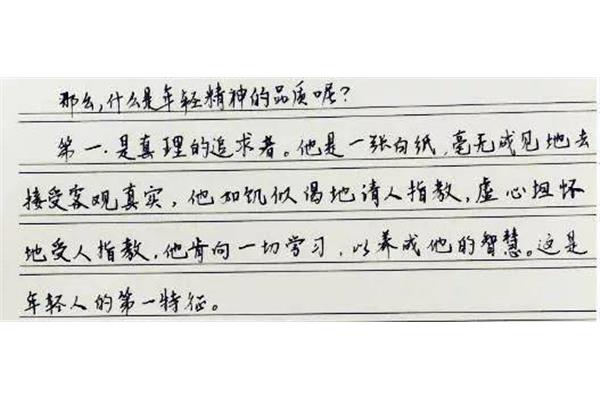 那么,什么是年轻精神的品质呢?
第一.是真理的追求者。他是一张白纸,毫无成见地去
接受客观真实,他如饥似渴地请人指教,虚心坦怀
地受人指教,他肯向一切学习,以养成他的智慧。这是
年轻人的第一特征。